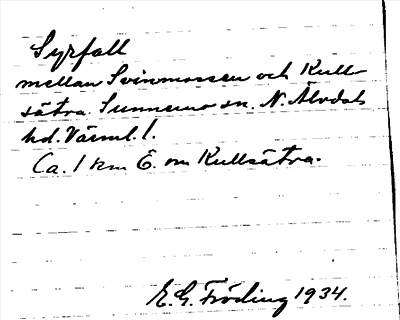 Syrfall
mellan Svinmossen och Kull-
sätra. Sunnemo sn. N. Älvdals
hd. Värml. l.
Ca. 1 km Ö. om Kullsätra.
E. G. Fröding 1934.